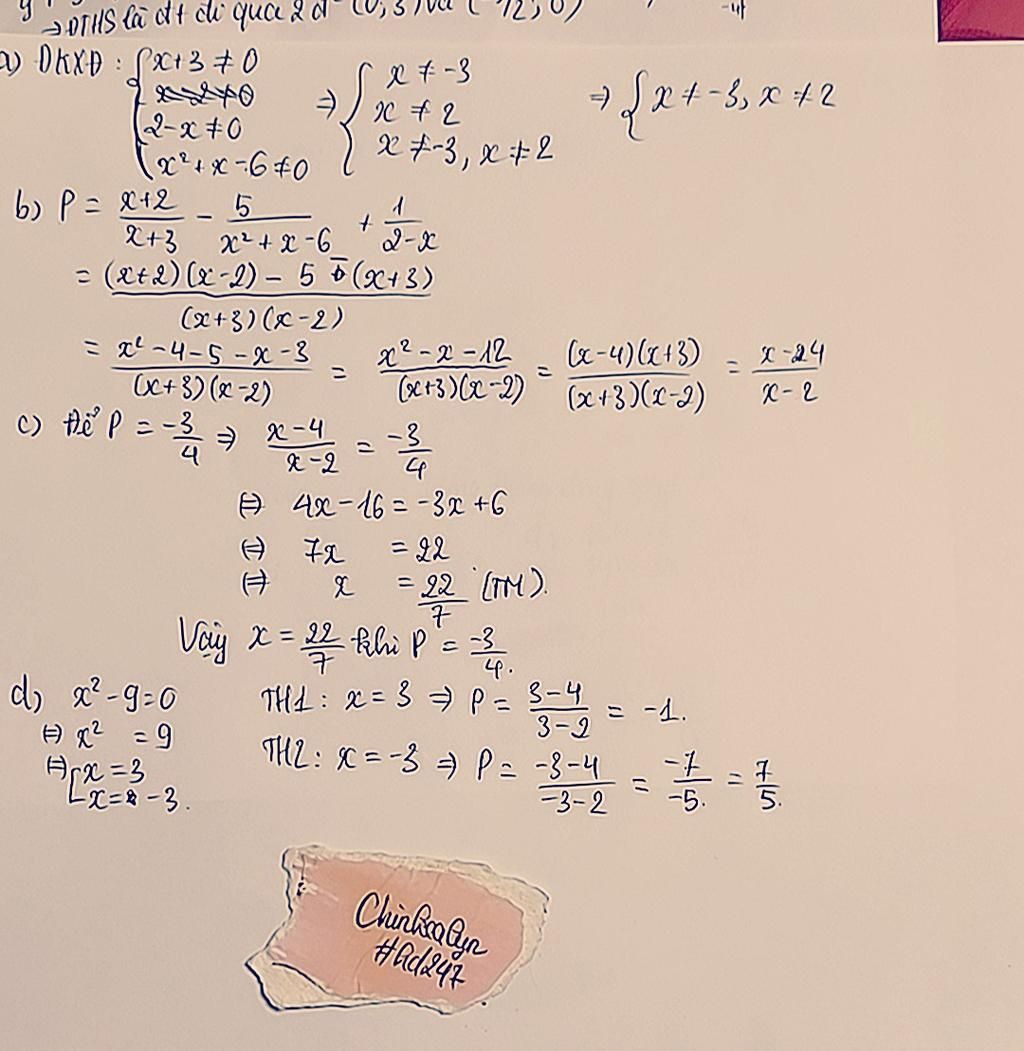 →ĐTHS là đt đi qua 2 đ (0; 3) và (-12; 0)
a) ĐKXĐ : { x+3 ≠ 0
2-x ≠ 0
x² + x - 6 ≠ 0
⇒ { x ≠ -3
x ≠ 2
x ≠ -3, x ≠ 2
⇒ { x ≠ -3, x ≠ 2
b) P = (x+2)/(x+3) - 5/(x² + x - 6) + 1/(2-x)
= ((x+2)(x-2) - 5 - (x+3))/((x+3)(x-2))
= (x² - 4 - 5 - x - 3)/((x+3)(x-2)) = (x² - x - 12)/((x+3)(x-2)) = ((x-4)(x+3))/((x+3)(x-2)) = (x-4)/(x-2)
c) Để P = -3/4 ⇒ (x-4)/(x-2) = -3/4
⇔ 4x - 16 = -3x + 6
⇔ 7x = 22
⇔ x = 22/7 (TM).
Vậy x = 22/7 khi P = -3/4.
d) x² - 9 = 0
⇔ x² = 9
⇔ [ x = 3
x = -3.
TH1 : x = 3 ⇒ P = (3-4)/(3-2) = -1.
TH2 : x = -3 ⇒ P = (-3-4)/(-3-2) = -7/-5. = 7/5.
#Ad247